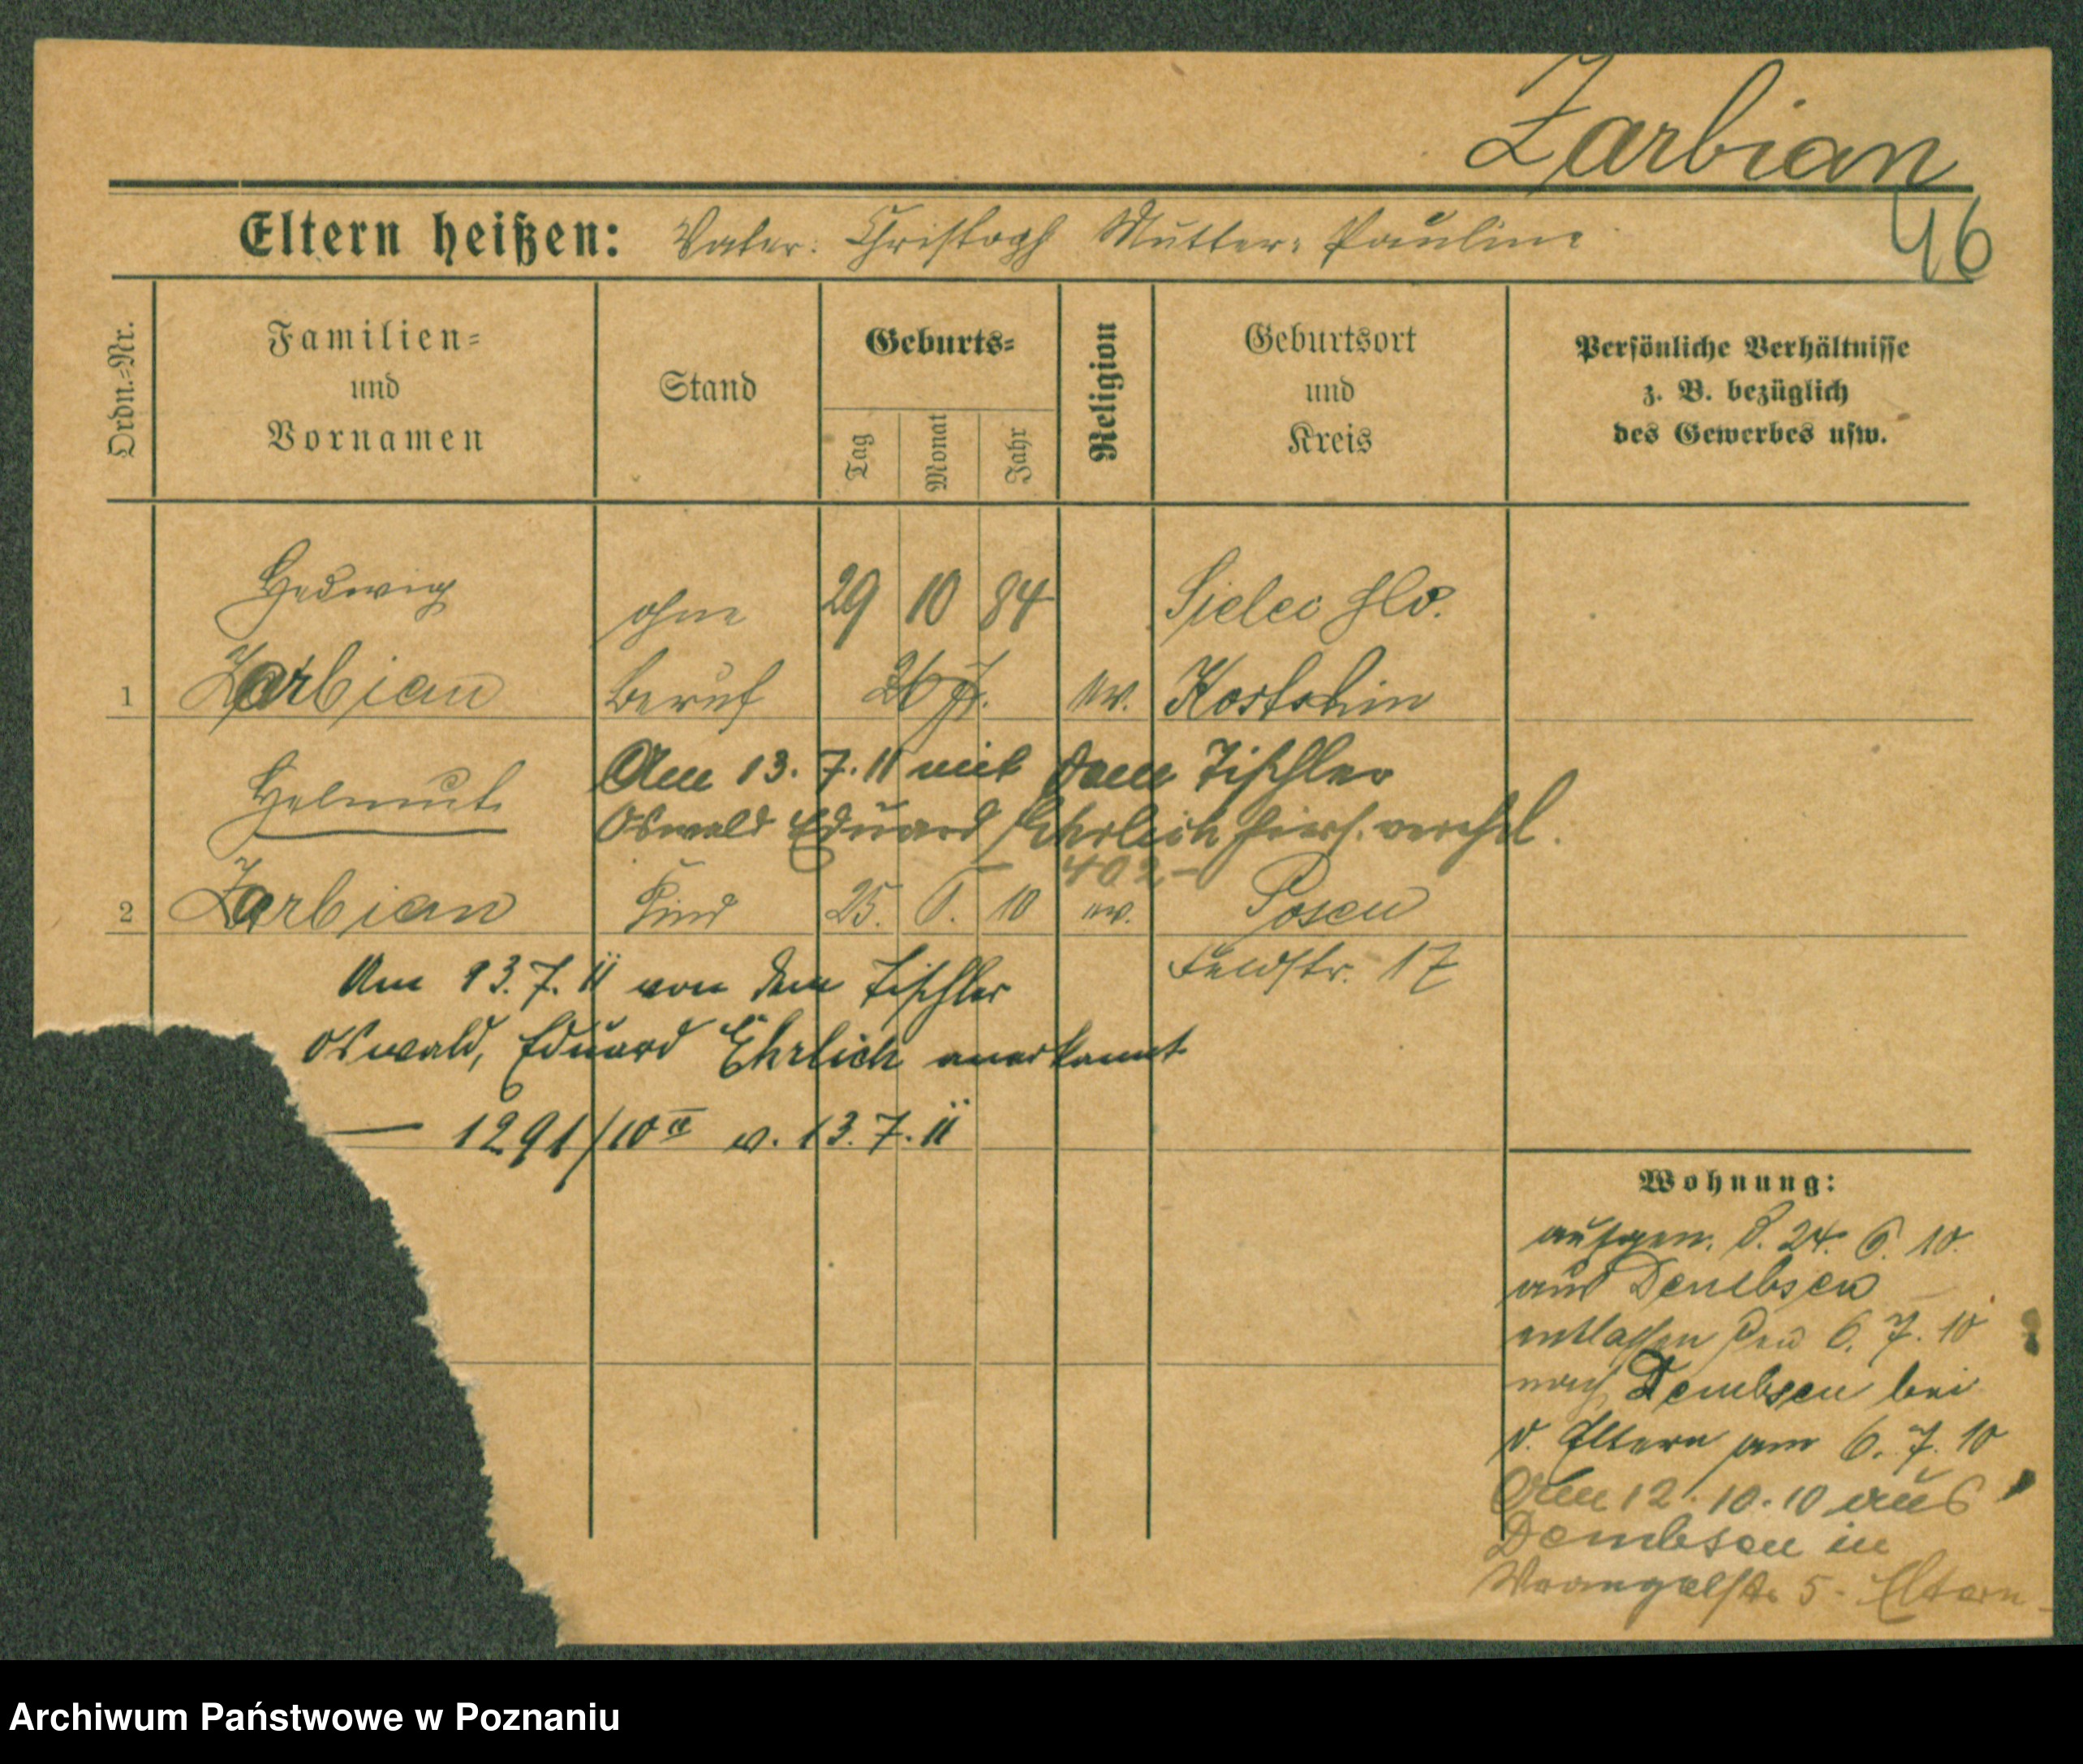 Zarbian
46
Eltern heißen: Vater: Christoph Mutter: Pauline
Ordn.-Nr.
Familien-
und
Vornamen
Stand
Geburts-
Tag
Monat
Jahr
Religion
Geburtsort
und
Kreis
Persönliche Verhältnisse
z. B. bezüglich
des Gewerbes usw.
Hedwig
ohne
29 10 84
Sielec
1
Zarbian
Beruf
26 J.
ev.
Kostschin
Am 13. 7. 11 mit dem Tischler
Helmut
Oswald Eduard Ehrlich hier
402
2
Zarbian
Kind
25. 6. 10
ev.
Posen
Feldstr. 17
Am 13. 7. 11 von dem Tischler
Oswald, Eduard Ehrlich anerkannt
— 1291/10 v. 13. 7. 11
Wohnung:
aufgen. d. 24. 6. 10.
aus Dembsen
entlassen den 6. 7. 10
nach Dembsen bei
d. Eltern am 6. 7. 10
Am 12. 10. 10 aus
Dembsen in
Wrangelstr. 5 - Eltern -
Archiwum Państwowe w Poznaniu